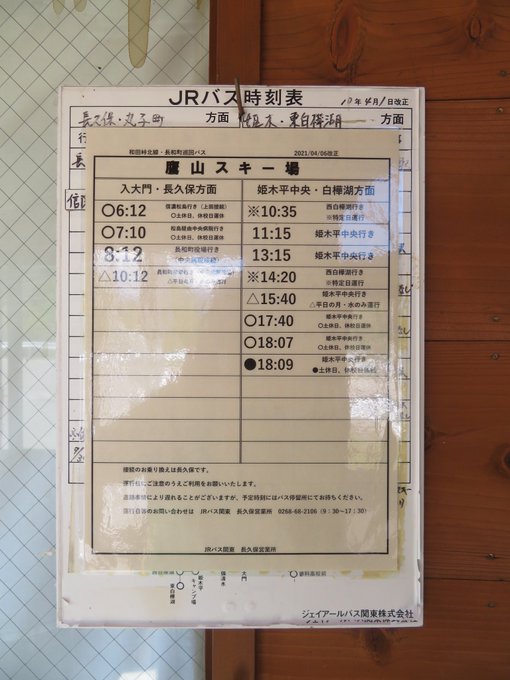 JRバス時刻表
10年4月1日改正
長久保・丸子町 方面
東白樺湖 方面
和田峠北線・長和町巡回バス 2021/04/06改正
鷹山スキー場
入大門・長久保方面
○6:12
○土休日、休校日運休
○7:10
○土休日、休校日運休
8:12
長和町役場行き
△10:12
△平日の月・水のみ運行
姫木平中央・白樺湖方面
※10:35
西白樺湖行き
※特定日運行
11:15 姫木平中央行き
13:15 姫木平中央行き
※14:20
西白樺湖行き
※特定日運行
△15:40
姫木平中央行き
△平日の月・水のみ運行
○17:40
姫木平中央行き
○土休日、休校日運休
○18:07
姫木平中央行き
○土休日、休校日運休
●18:09
姫木平中央行き
●土休日、休校日運転
接続のお乗り換えは長久保です。
運行日にご注意のうえご利用をお願いいたします。
道路事情により遅れることがございますが、予定時刻にはバス停留所にてお待ちください。
運行自等のお問い合わせは JRバス関東 長久保営業所 0268-68-2106（9：30～17：30）
JRバス関東 長久保営業所
東白樺湖
姫木平
キャンプ場
大門
ジェイアールバス関東株式会社